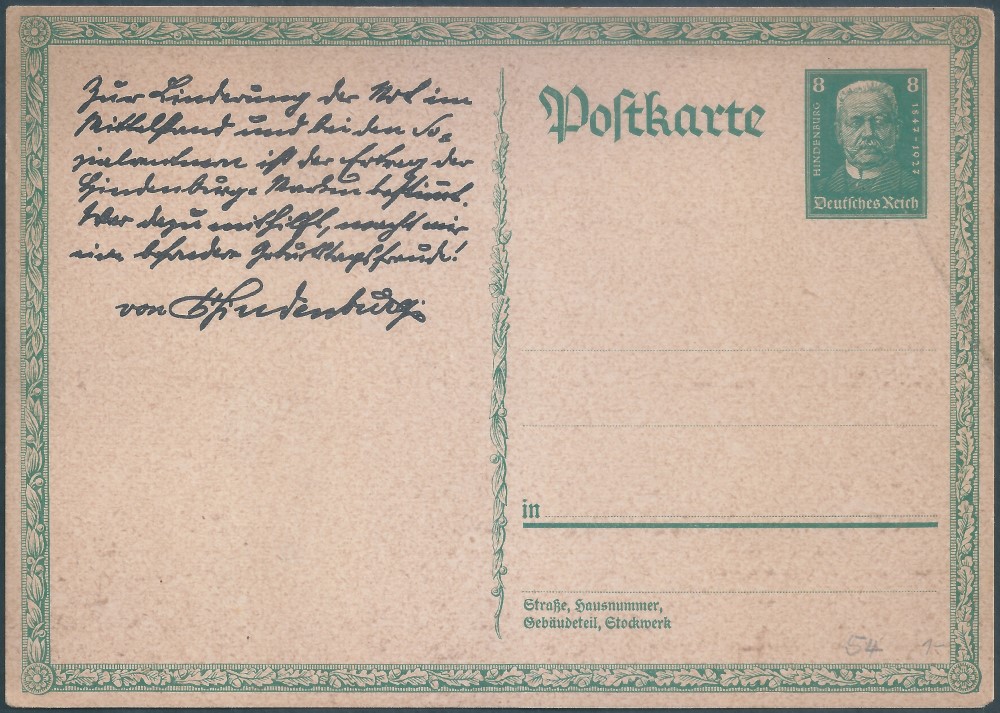 Zur Linderung der Not im
Mittelstand und bei den So=
zialrentnern ist der Ertrag der
Hindenburg= Marken bestimmt.
Wer dazu mithilft, macht mir
eine besondere Geburtstagsfreude!
von Hindenburg.
Postkarte
8 8
HINDENBURG
1847-1927
Deutsches Reich
in
Straße, Hausnummer,
Gebäudeteil, Stockwerk
54 1-